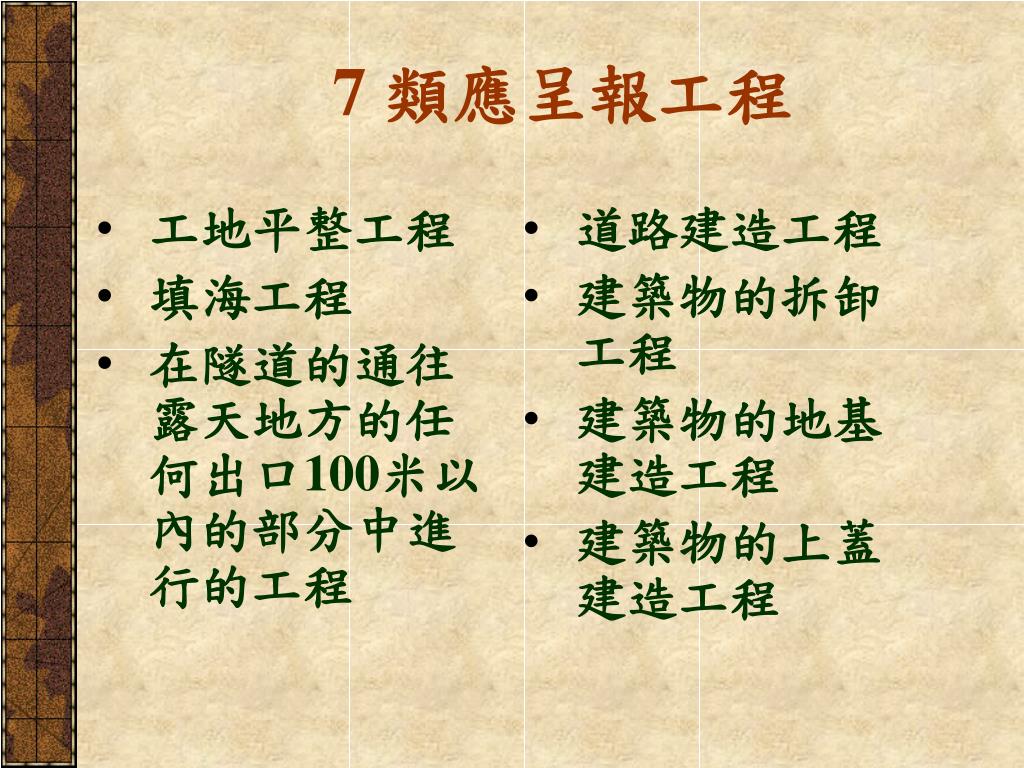 7 類應呈報工程
• 工地平整工程
• 填海工程
• 在隧道的通往
露天地方的任
何出口100米以
內的部分中進
行的工程
• 道路建造工程
• 建築物的拆卸
工程
• 建築物的地基
建造工程
• 建築物的上蓋
建造工程